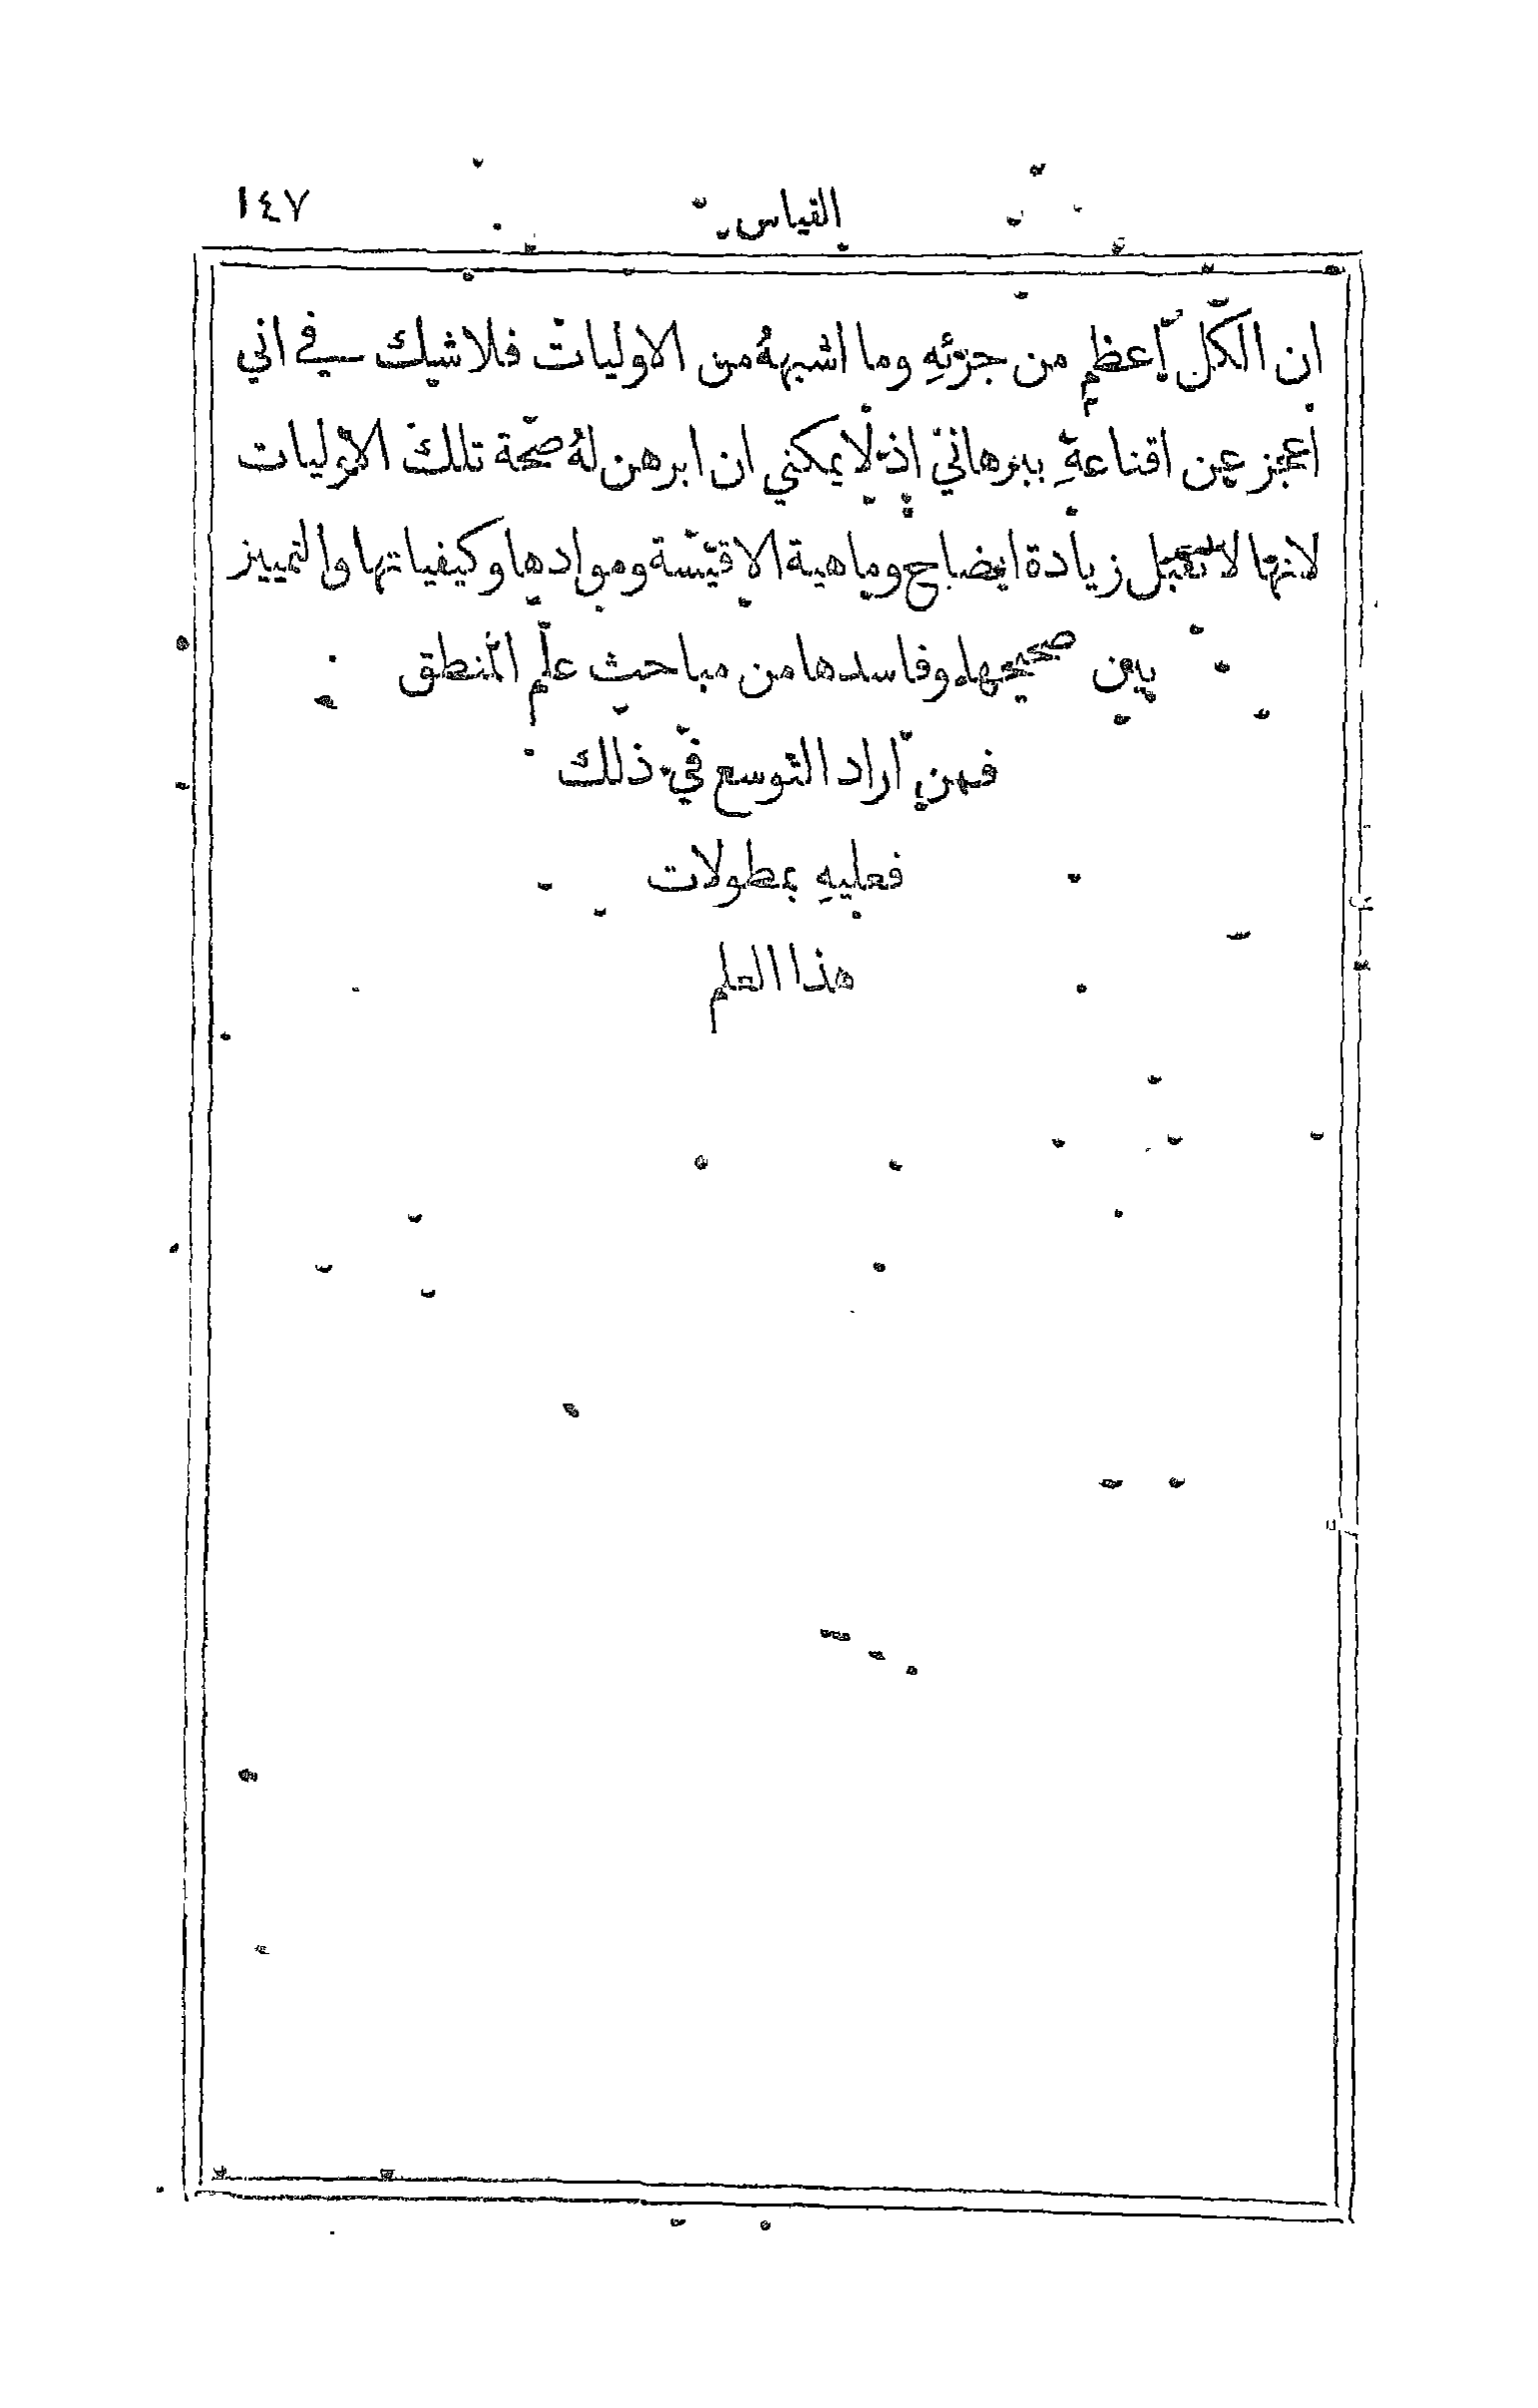 القياس ١٤٧
ان الكل اعظم من جزئهِ وما اشبههُ من الاوليات فلا شك في اني
اعجز عن اقناعهِ ببرهاني اذ لا يمكني ان ابرهن لهُ صحة تلك الاوليات
لانها لا تقبل زيادة ايضاح وماهية الاقيسة وموادها وكيفياتها والتمييز
بين صحيحها وفاسدها من مباحث علم المنطق
فمن اراد التوسع في ذلك
فعليهِ بمطولات
هذا العلم